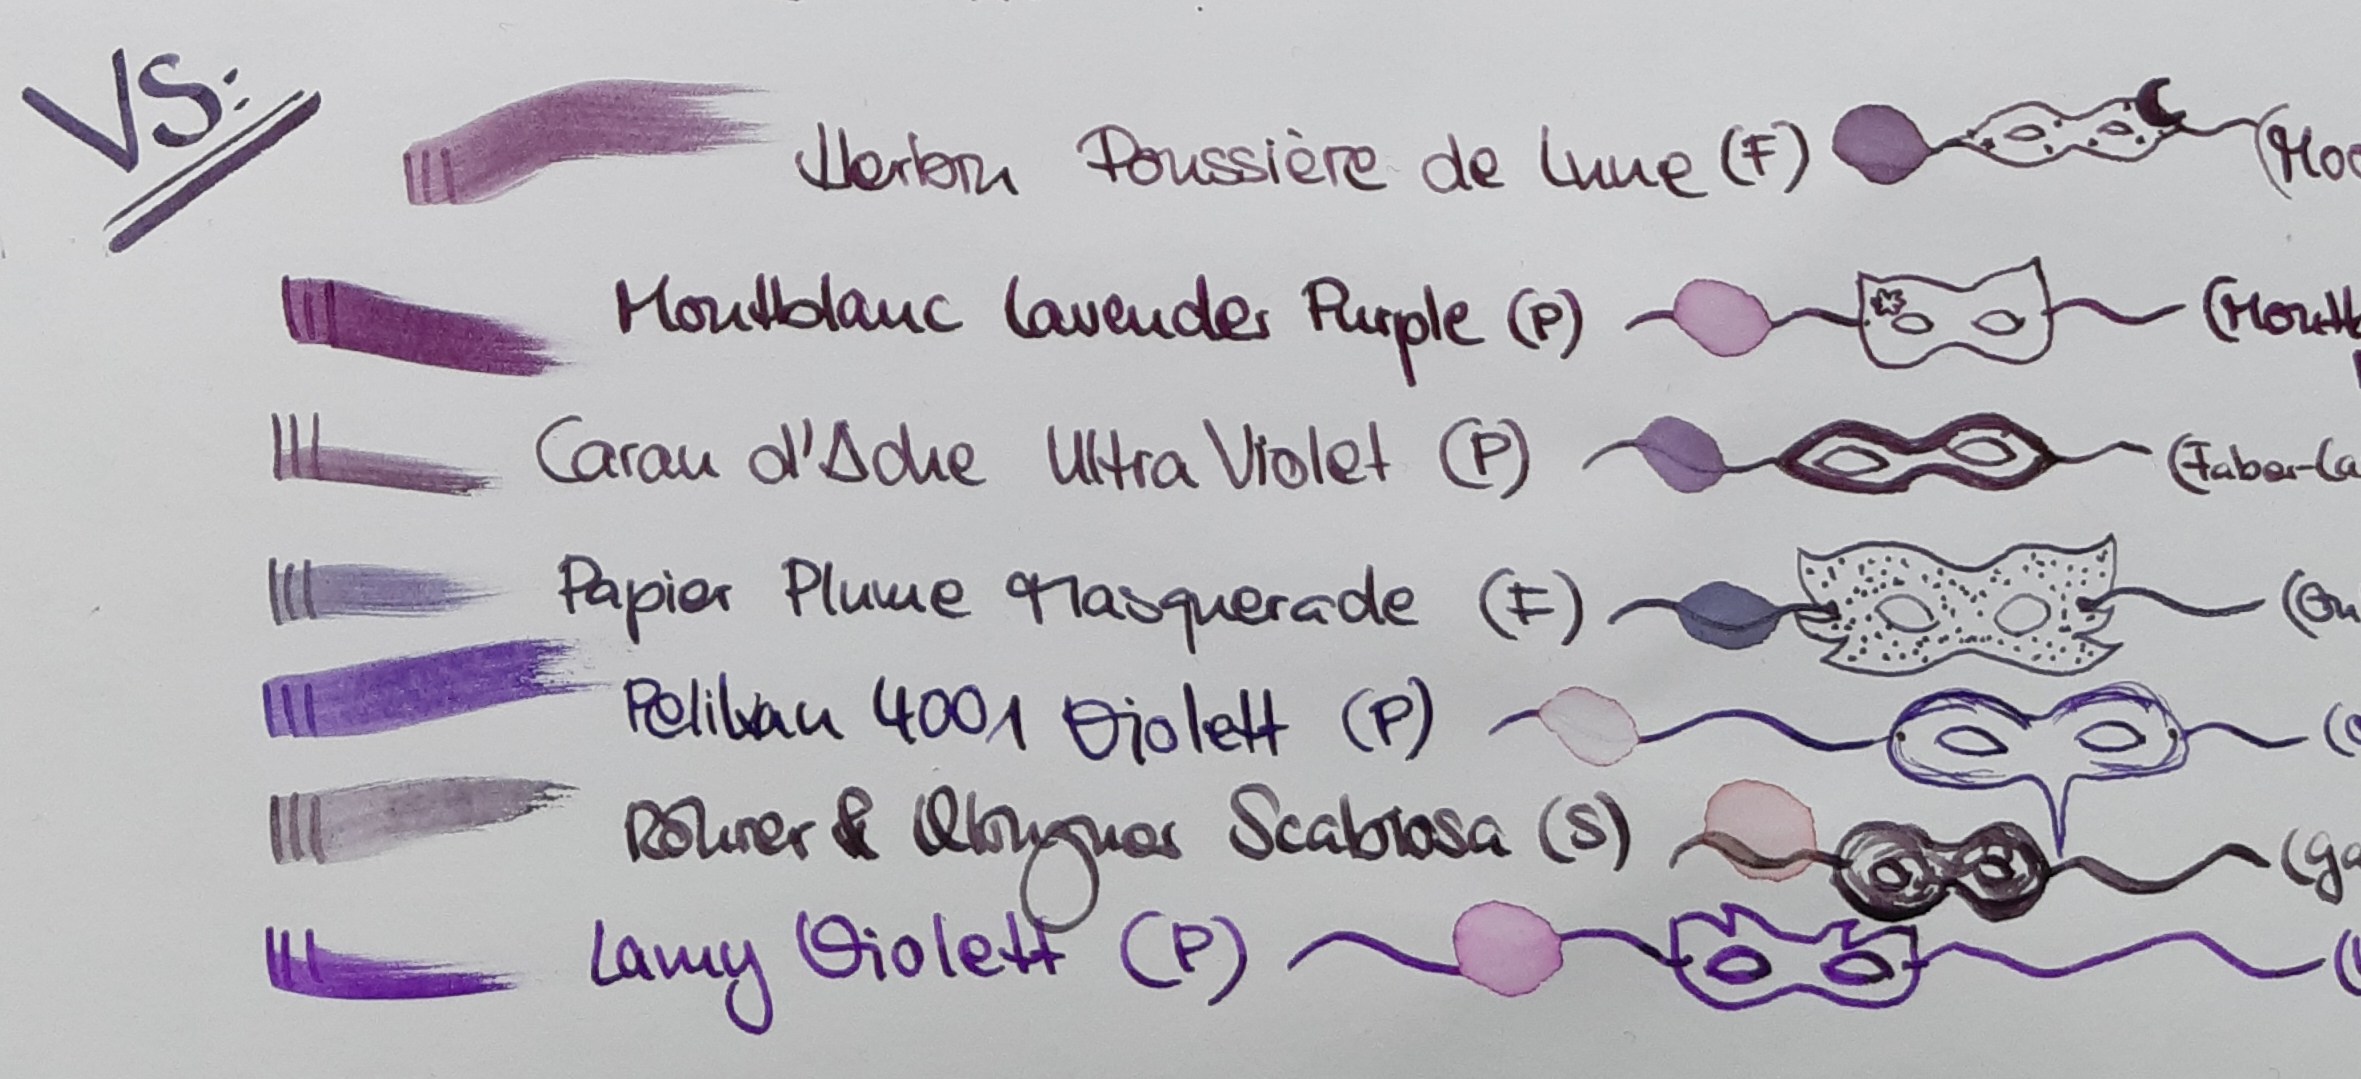 VS:
Herbin Poussière de Lune (F)
Montblanc Lavender Purple (P)
Caran d'Ache Ultra Violet (P) (Faber-Ca
Papier Plume Masquerade (F)
Pelikan 4001 Violett (P)
Rohrer & Klingner Scabiosa (S)
Lamy Violett (P)